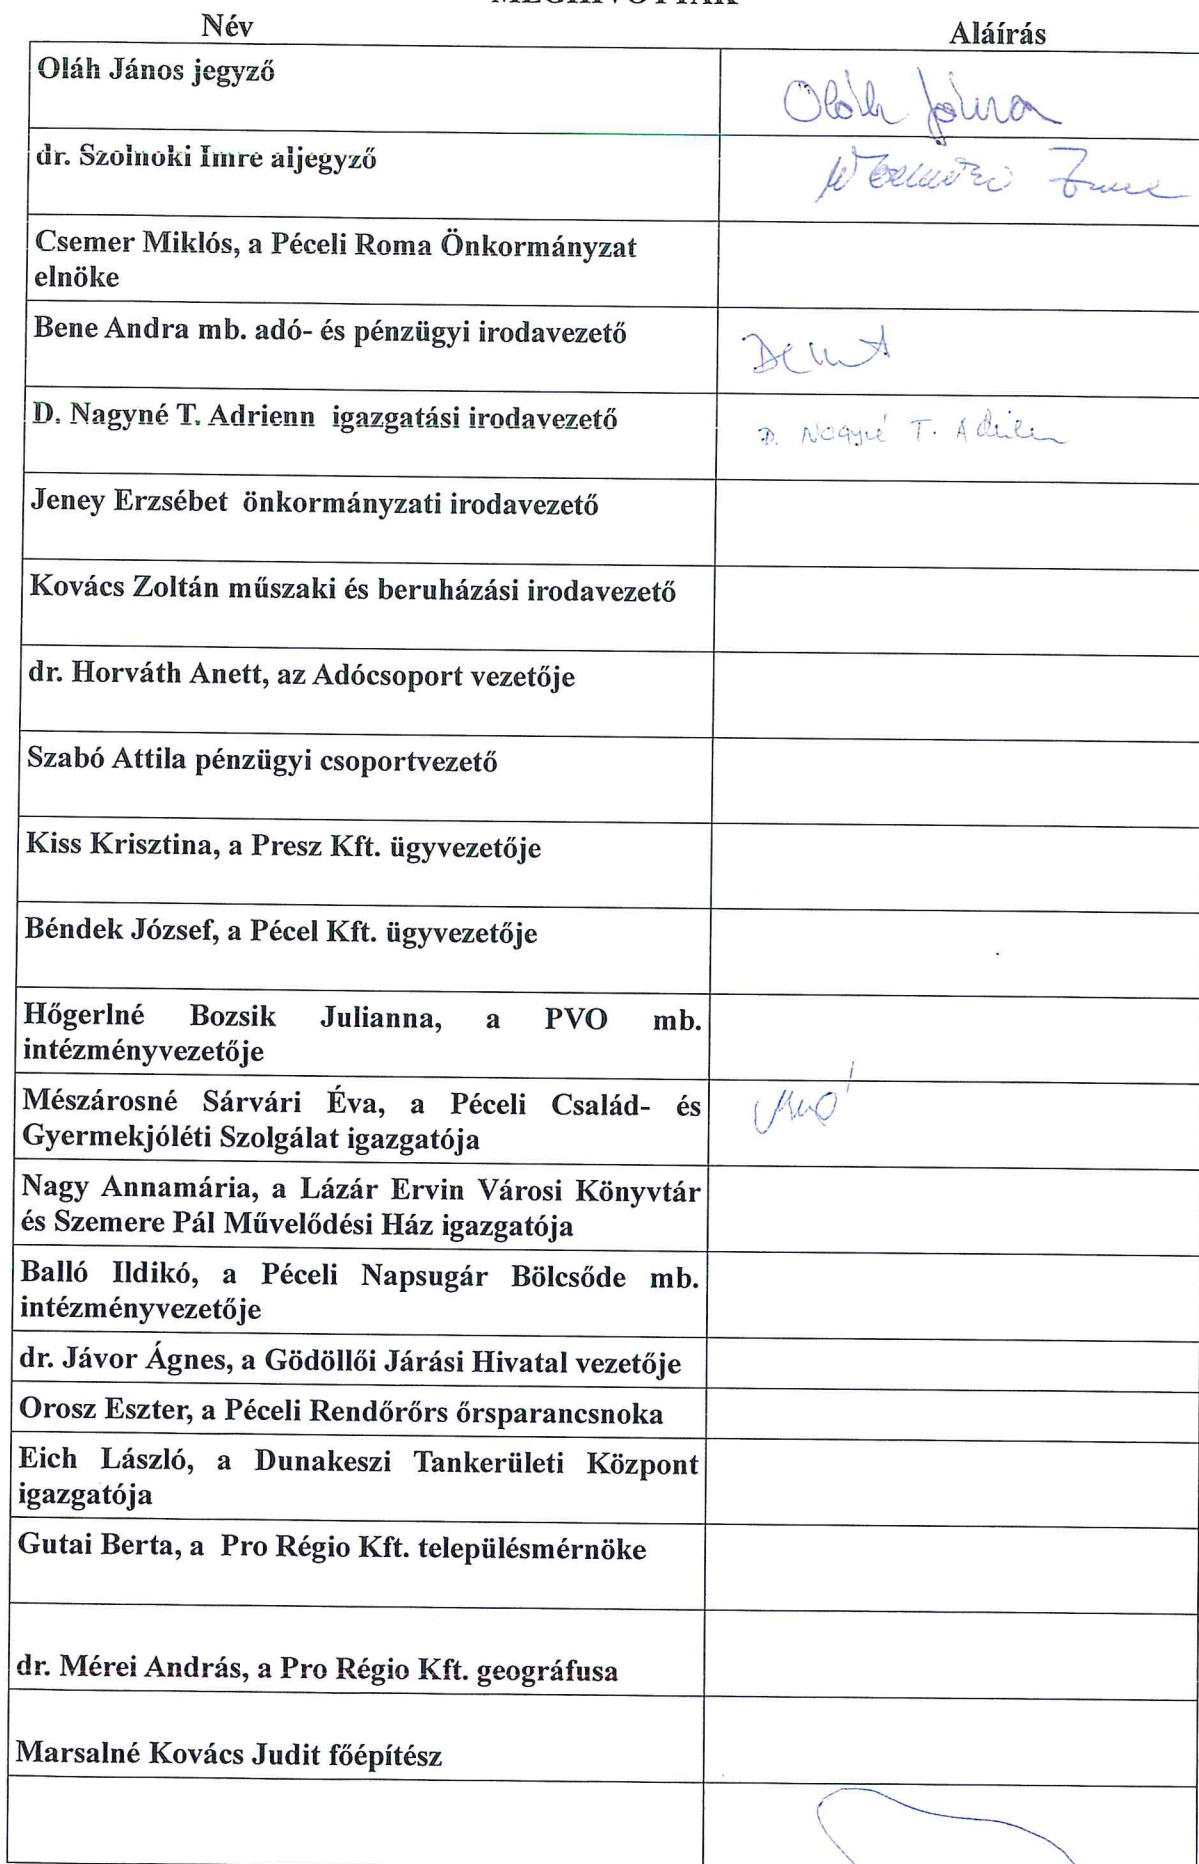 MEGHÍVOTTAK
Név Aláírás
Oláh János jegyző Oláh János
dr. Szolnoki Imre aljegyző dr Szolnoki Imre
Csemer Miklós, a Péceli Roma Önkormányzat
elnöke
Bene Andra mb. adó- és pénzügyi irodavezető
D. Nagyné T. Adrienn igazgatási irodavezető D. Nagyné T. Adrienn
Jeney Erzsébet önkormányzati irodavezető
Kovács Zoltán műszaki és beruházási irodavezető
dr. Horváth Anett, az Adócsoport vezetője
Szabó Attila pénzügyi csoportvezető
Kiss Krisztina, a Presz Kft. ügyvezetője
Béndek József, a Pécel Kft. ügyvezetője
Hőgerlné Bozsik Julianna, a PVO mb.
intézményvezetője
Mészárosné Sárvári Éva, a Péceli Család- és
Gyermekjóléti Szolgálat igazgatója
Nagy Annamária, a Lázár Ervin Városi Könyvtár
és Szemere Pál Művelődési Ház igazgatója
Balló Ildikó, a Péceli Napsugár Bölcsőde mb.
intézményvezetője
dr. Jávor Ágnes, a Gödöllői Járási Hivatal vezetője
Orosz Eszter, a Péceli Rendőrőrs őrsparancsnoka
Eich László, a Dunakeszi Tankerületi Központ
igazgatója
Gutai Berta, a Pro Régio Kft. településmérnöke
dr. Mérei András, a Pro Régio Kft. geográfusa
Marsalné Kovács Judit főépítész